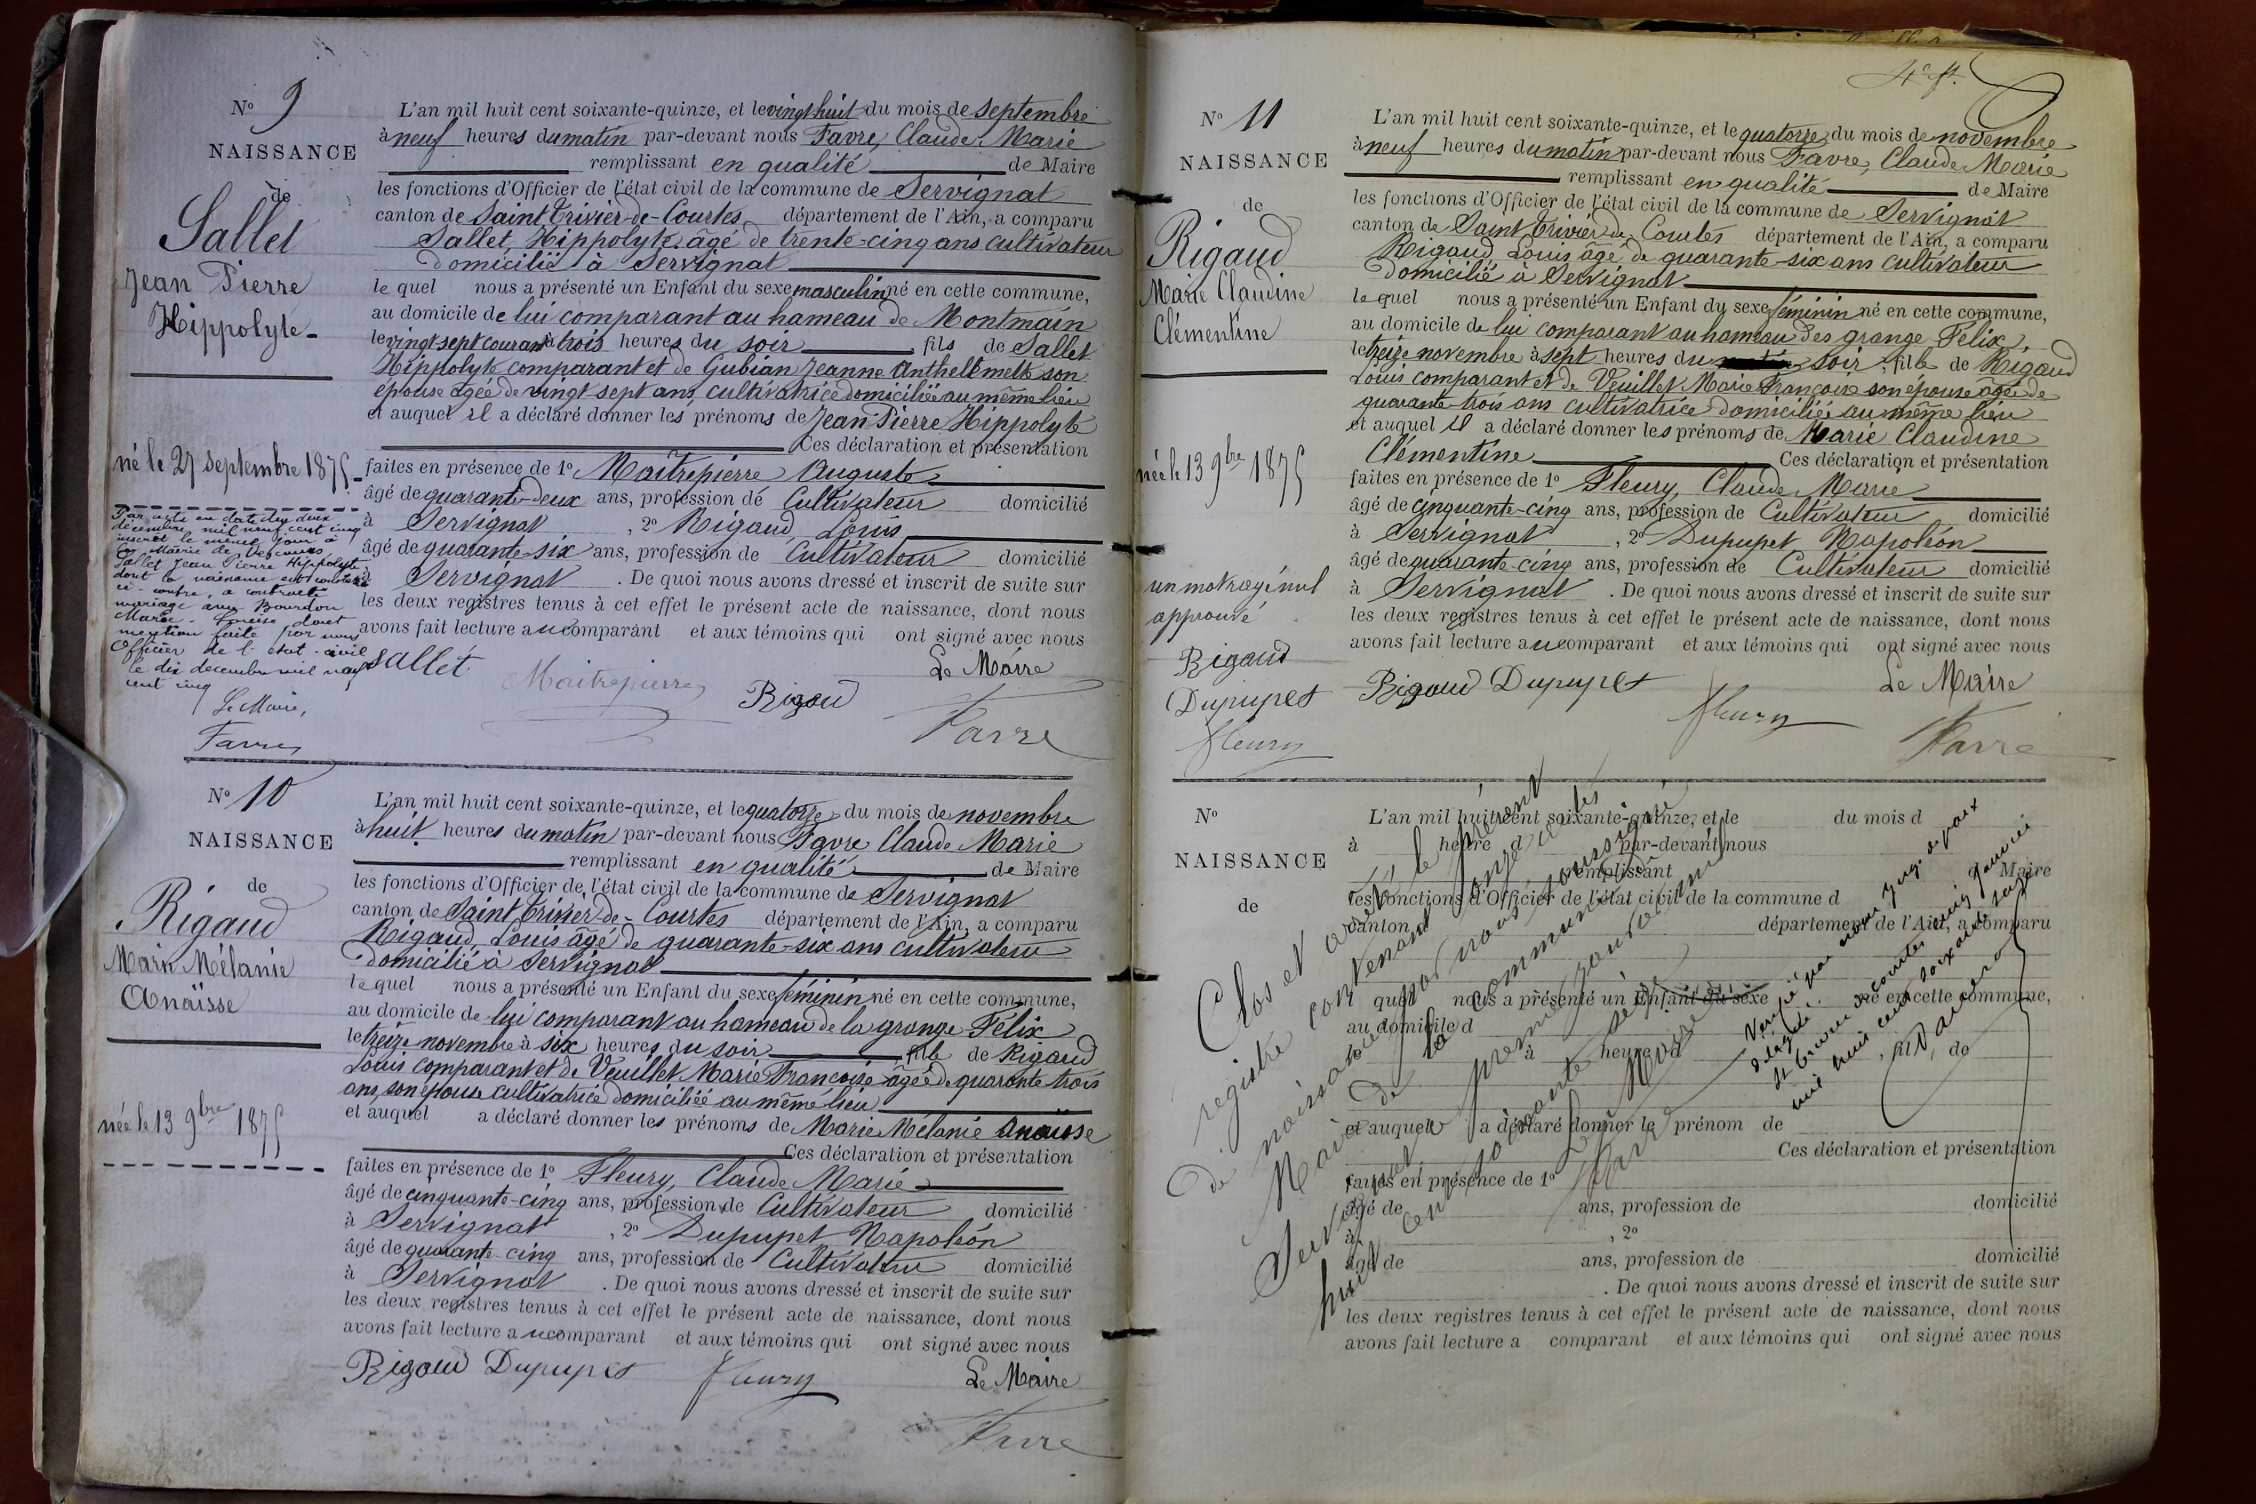 N° 9
NAISSANCE
de
Sallet
Jean Pierre
Hippolyte
né le 27 septembre 1875
Par acte en date du deux
décembre mil neuf cent cinq
inscrit le même jour à
la Mairie de Vescours
Sallet Jean Pierre Hippolyte
dont la naissance est constatée
ci-contre, a contracté
mariage avec Bourdon
Marie dont
mention faite par nous
Officier de l'état-civil
le dix décembre mil neuf
cent cinq
Le Maire,
Favre
L'an mil huit cent soixante-quinze, et le vingt huit du mois de septembre
à neuf heures du matin par-devant nous Favre, Claude Marie
remplissant en qualité de Maire
les fonctions d'Officier de l'état civil de la commune de Servignat
canton de Saint Trivier-de-Courtes département de l'Ain, a comparu
Sallet, Hippolyte âgé de trente-cinq ans cultivateur
domicilié à Servignat
le quel nous a présenté un Enfant du sexe masculin né en cette commune,
au domicile de lui comparant au hameau de Montmain
le vingt sept courant à trois heures du soir fils de Sallet
Hippolyte comparant et de Gubian Jeanne Anthellmette son
épouse âgée de vingt sept ans, cultivatrice domiciliée au même lieu
et auquel il a déclaré donner les prénoms de Jean Pierre Hippolyte
Ces déclaration et présentation
faites en présence de 1° Maîtrepierre Auguste
âgé de quarante-deux ans, profession de Cultivateur domicilié
à Servignat, 2° Rigaud, Louis
âgé de quarante-six ans, profession de Cultivateur domicilié
à Servignat. De quoi nous avons dressé et inscrit de suite sur
les deux registres tenus à cet effet le présent acte de naissance, dont nous
avons fait lecture au comparant et aux témoins qui ont signé avec nous
Le Maire
Sallet Maitrepierre Rigaud Favre
N° 10
NAISSANCE
de
Rigaud
Marie Mélanie
Anaïsse
née le 13 9bre 1875
L'an mil huit cent soixante-quinze, et le quatorze du mois de novembre
à huit heures du matin par-devant nous Favre Claude Marie
remplissant en qualité de Maire
les fonctions d'Officier de l'état civil de la commune de Servignat
canton de Saint Trivier-de-Courtes département de l'Ain, a comparu
Rigaud, Louis âgé de quarante-six ans cultivateur
domicilié à Servignat
le quel nous a présenté un Enfant du sexe féminin né en cette commune,
au domicile de lui comparant au hameau de la grange Félix
le treize novembre à six heures du soir fille de Rigaud
Louis comparant et de Veuillet Marie Françoise âgée de quarante trois
ans, son épouse cultivatrice domiciliée au même lieu
et auquel a déclaré donner les prénoms de Marie Mélanie Anaïsse
Ces déclaration et présentation
faites en présence de 1° Fleury, Claude Marie
âgé de cinquante-cinq ans, profession de Cultivateur domicilié
à Servignat, 2° Dupupet Napoléon
âgé de quarante-cinq ans, profession de Cultivateur domicilié
à Servignat. De quoi nous avons dressé et inscrit de suite sur
les deux registres tenus à cet effet le présent acte de naissance, dont nous
avons fait lecture au comparant et aux témoins qui ont signé avec nous
Rigaud Dupupet fleury Le Maire
Favre
N° 11
NAISSANCE
de
Rigaud
Marie Claudine
Clémentine
née le 13 9bre 1875
un mot rayé nul
approuvé
Rigaud
Dupupet
fleury
L'an mil huit cent soixante-quinze, et le quatorze du mois de novembre
à neuf heures du matin par-devant nous Favre, Claude Marie
remplissant en qualité de Maire
les fonctions d'Officier de l'état civil de la commune de Servignat
canton de Saint Trivier de Courtes département de l'Ain, a comparu
Rigaud, Louis âgé de quarante-six ans cultivateur
domicilié à Servignat
le quel nous a présenté un Enfant du sexe féminin né en cette commune,
au domicile de lui comparant au hameau des grange Félix
le treize novembre à sept heures du soir, fille de Rigaud
Louis comparant et de Veuillet Marie Françoise son épouse âgée de
quarante-trois ans cultivatrice domiciliée au même lieu
et auquel il a déclaré donner les prénoms de Marie Claudine
Clémentine Ces déclaration et présentation
faites en présence de 1° Fleury, Claude Marie
âgé de cinquante-cinq ans, profession de Cultivateur domicilié
à Servignat, 2° Dupupet Napoléon
âgé de quarante-cinq ans, profession de Cultivateur domicilié
à Servignat. De quoi nous avons dressé et inscrit de suite sur
les deux registres tenus à cet effet le présent acte de naissance, dont nous
avons fait lecture au comparant et aux témoins qui ont signé avec nous
Le Maire
Rigaud Dupupet fleury Favre
N°
NAISSANCE
de
L'an mil huit cent soixante-quinze, et le du mois d
à heure d par-devant nous
remplissant Maire
les fonctions d'Officier de l'état civil de la commune d
canton département de l'Ain, a comparu
quel nous a présenté un Enfant du sexe né en cette commune,
au domicile d
à heure d fil de
et auquel a déclaré donner le prénom de
Ces déclaration et présentation
faites en présence de 1°
âgé de ans, profession de domicilié
à , 2°
âgé de ans, profession de domicilié
. De quoi nous avons dressé et inscrit de suite sur
les deux registres tenus à cet effet le présent acte de naissance, dont nous
avons fait lecture a comparant et aux témoins qui ont signé avec nous
Clos et arrêté le présent
registre contenant onze actes
de naissance par nous soussigné
Maire de la commune de
Servignat le premier janvier mil
huit cent soixante seize
Le Maire
Favre
Vérifié par nous Juge de paix
délégué.
St Trivier de Courtes cinq janvier
mil huit cent soixante seize